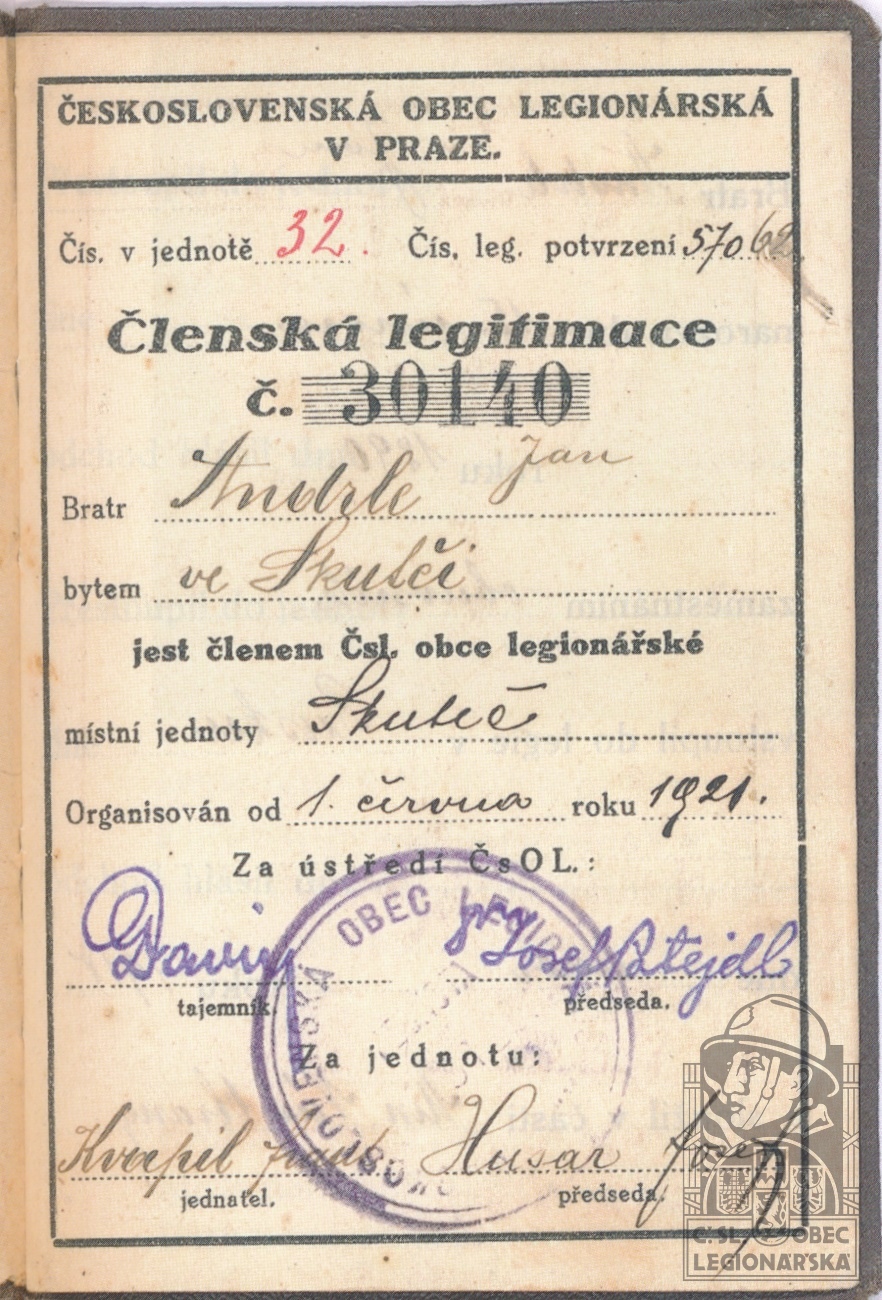 ČESKOSLOVENSKÁ OBEC LEGIONÁRSKÁ
V PRAZE.
Čís. v jednotě 32. Čís. leg. potvrzení 57062
Členská legitimace
č. 30140
Bratr Andrle Jan
bytem ve Skutči
jest členem Čsl. obce legionářské
místní jednoty Skuteč
Organisován od 1. června roku 1921.
Za ústředí ČsOL.:
OBEC LEGIO
Josef Patejdl
tajemník. předseda.
Za jednotu:
Kvapil Husar Josef
jednatel. předseda.
Č.SL. OBEC
LEGIONÁŘSKÁ